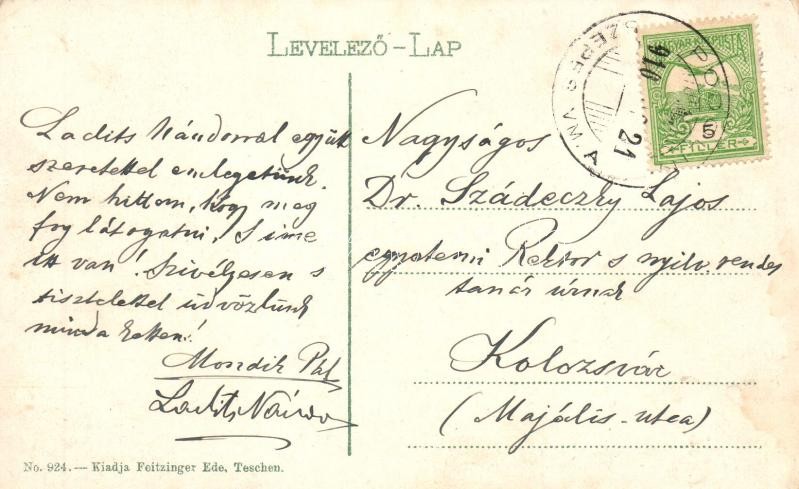 LEVELEZŐ-LAP
Ladits Nándorral együtt
szeretettel emlegetünk.
Nem hittem, hogy meg
fog látogatni, s ime
itt van! Szivélyesen s
tisztelettel üdvözlünk
mindaketten!
Mondik Pál
Ladits Nándor
No. 924.— Kiadja Feitzinger Ede, Teschen.
MAGYAR KIR. POSTA
5
FILLER
SZEPES VM.
910
21
A
Nagyságos
Dr. Szádeczky Lajos
egyetemi Rektor s nyilv. rendes
tanár úrnak
Kolozsvár
(Majális-utca)